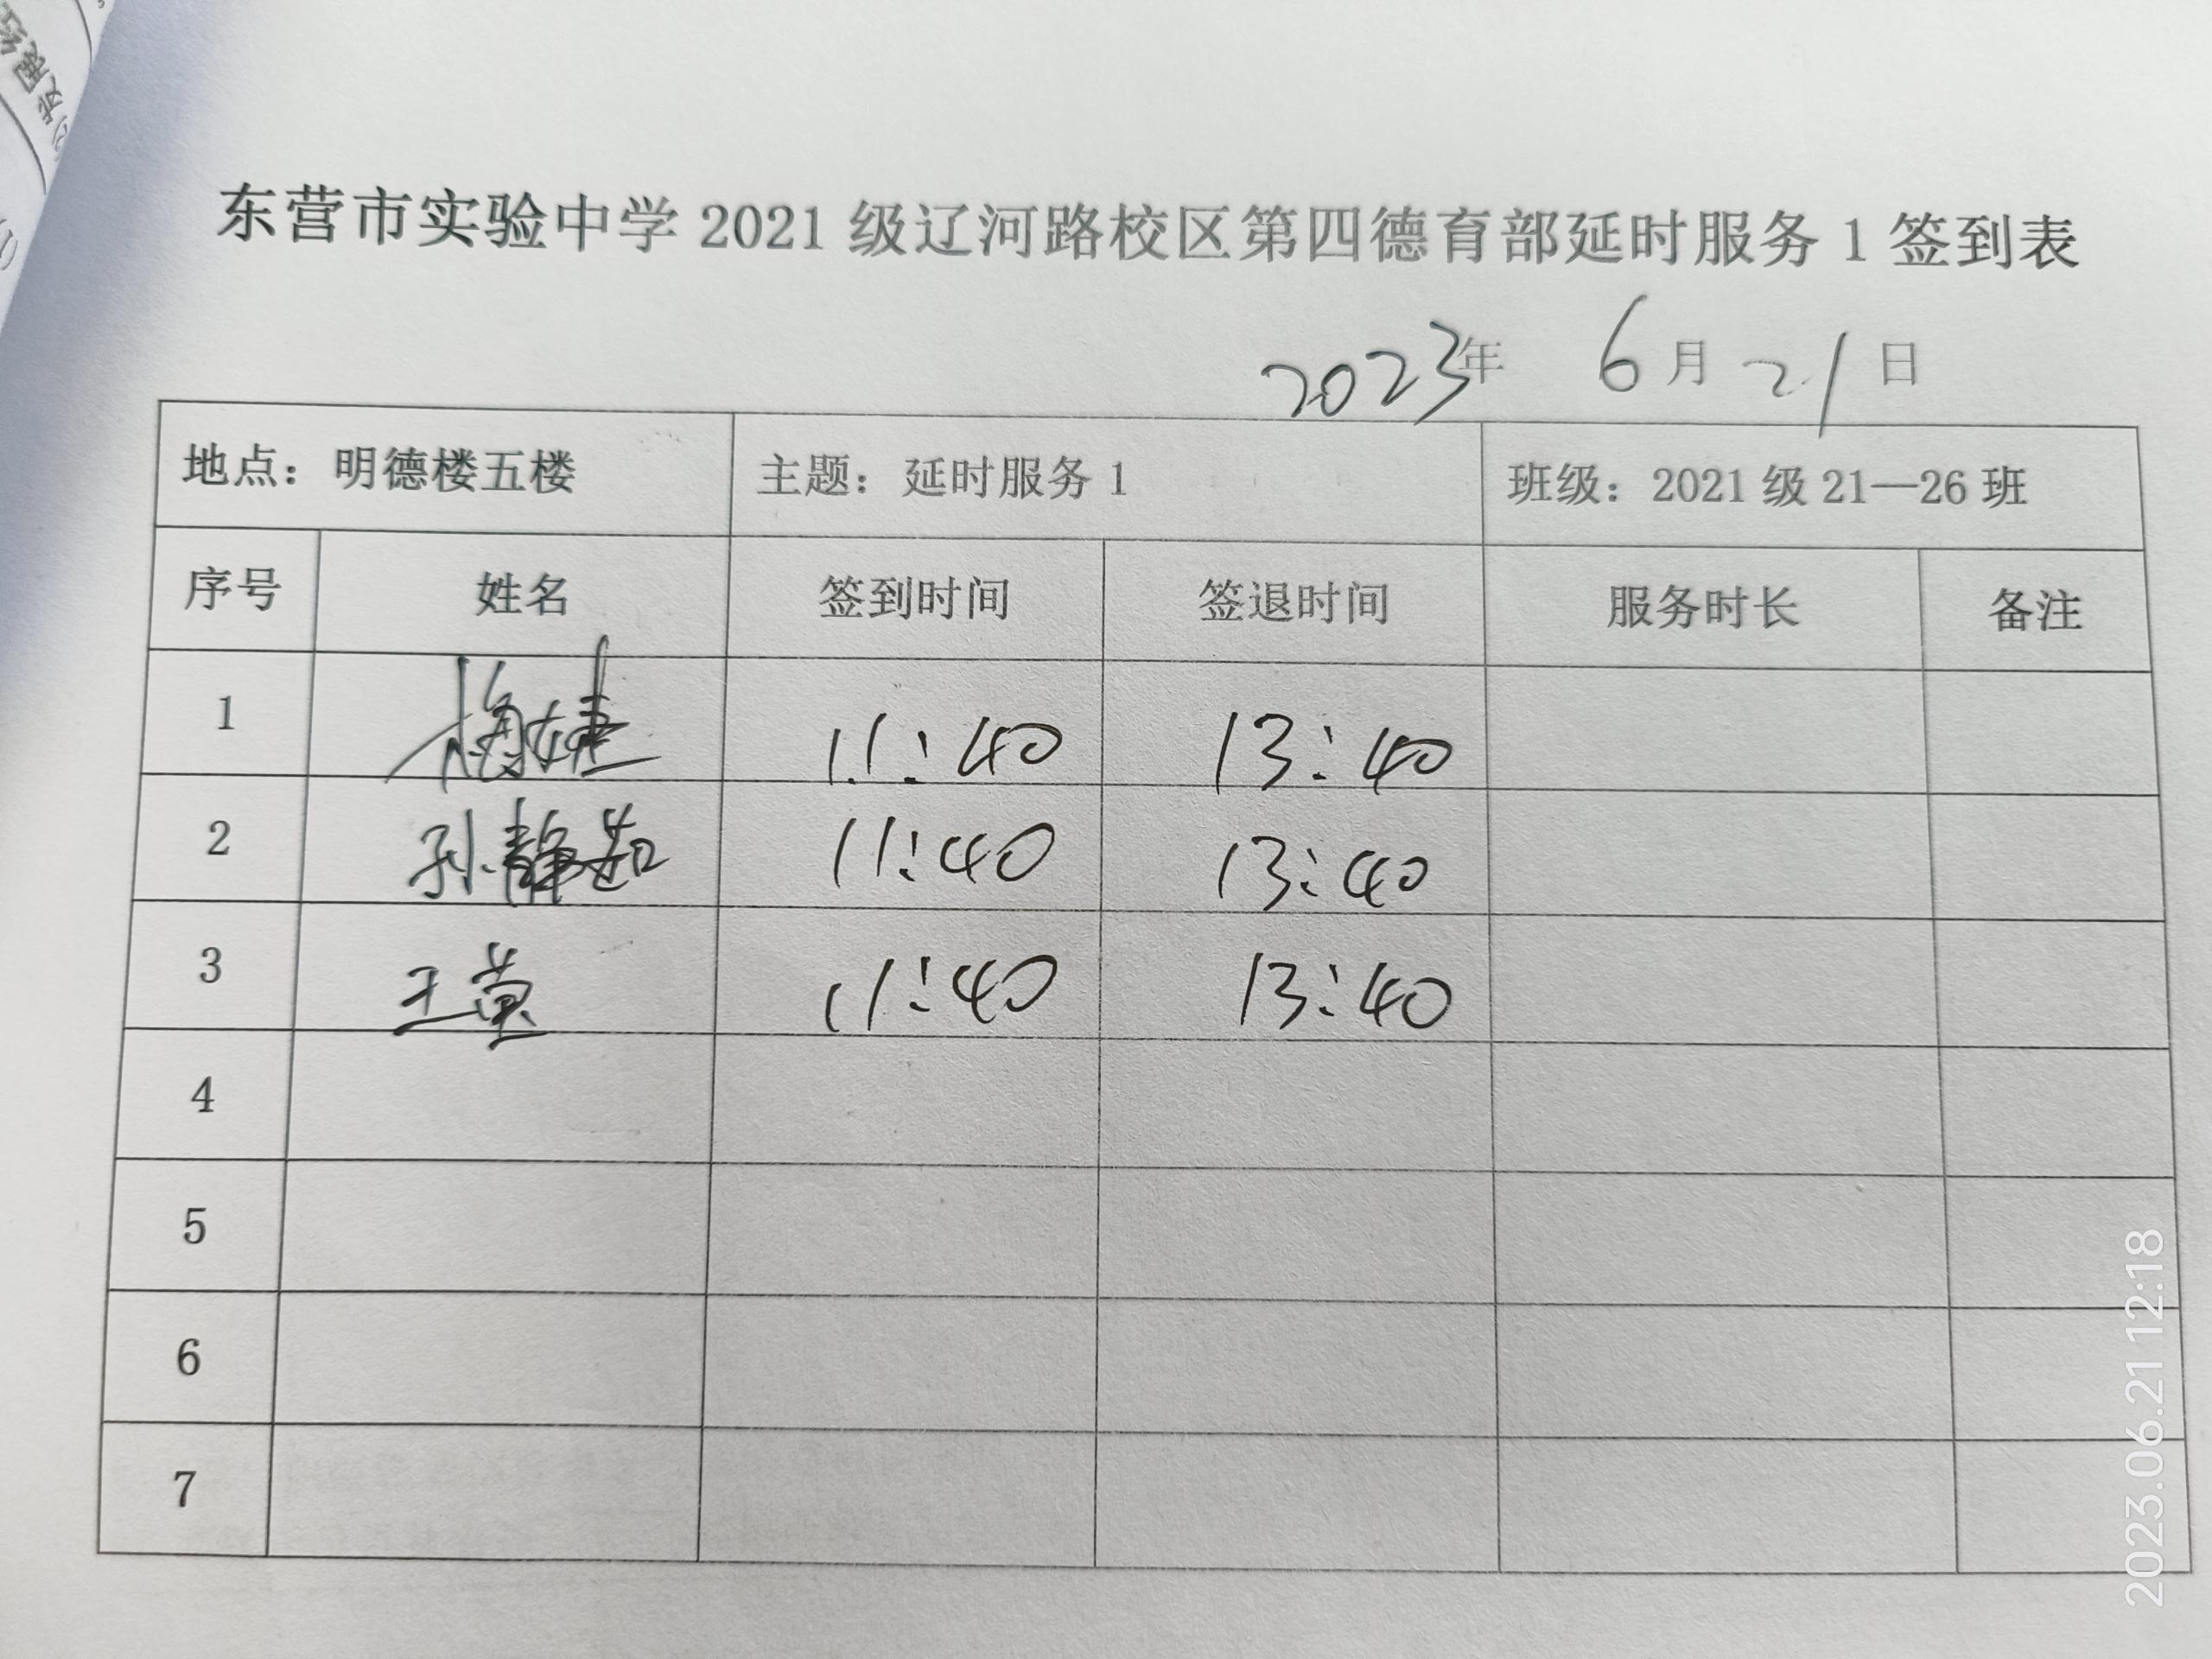 东营市实验中学 2021 级辽河路校区第四德育部延时服务 1 签到表
2023年 6月21日
地点：明德楼五楼 主题：延时服务 1 班级：2021 级 21—26 班
序号 姓名 签到时间 签退时间 服务时长 备注
1 11:40 13:40
2 孙静茹 11:40 13:40
3 11:40 13:40
4
5
6
7
2023.06.21 12:18